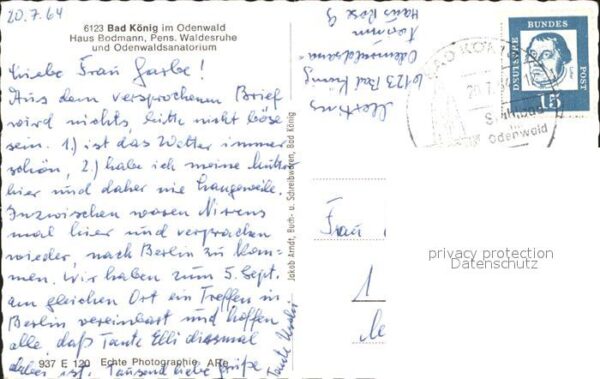 20.7.64
6123 Bad König im Odenwald
Haus Bodmann, Pens. Waldesruhe
und Odenwaldsanatorium
Liebe Frau Garbe!
Aus dem versprochenen Brief
wird nichts, bitte nicht böse
sein. 1.) ist das Wetter immer
schön, 2.) habe ich meine Mutter
hier und daher nie Langeweile.
Inzwischen waren
mal hier und versprachen
wieder, nach Berlin zu kom-
men. Wir haben zum 5. Sept.
am gleichen Ort ein Treffen in
Berlin vereinbart und hoffen
alle, daß Tante Elli diesmal
dabei ist. Tausend liebe Grüße
Tante
937 E 120 Echte Photographie ARe
Jakob Arndt, Buch- u. Schreibwaren, Bad König
6123 Bad König
Haus Rose
BAD KÖNIG
Stahlbad
im
Odenwald
DEUTSCHE BUNDESPOST
15
Frau
1
privacy protection
Datenschutz